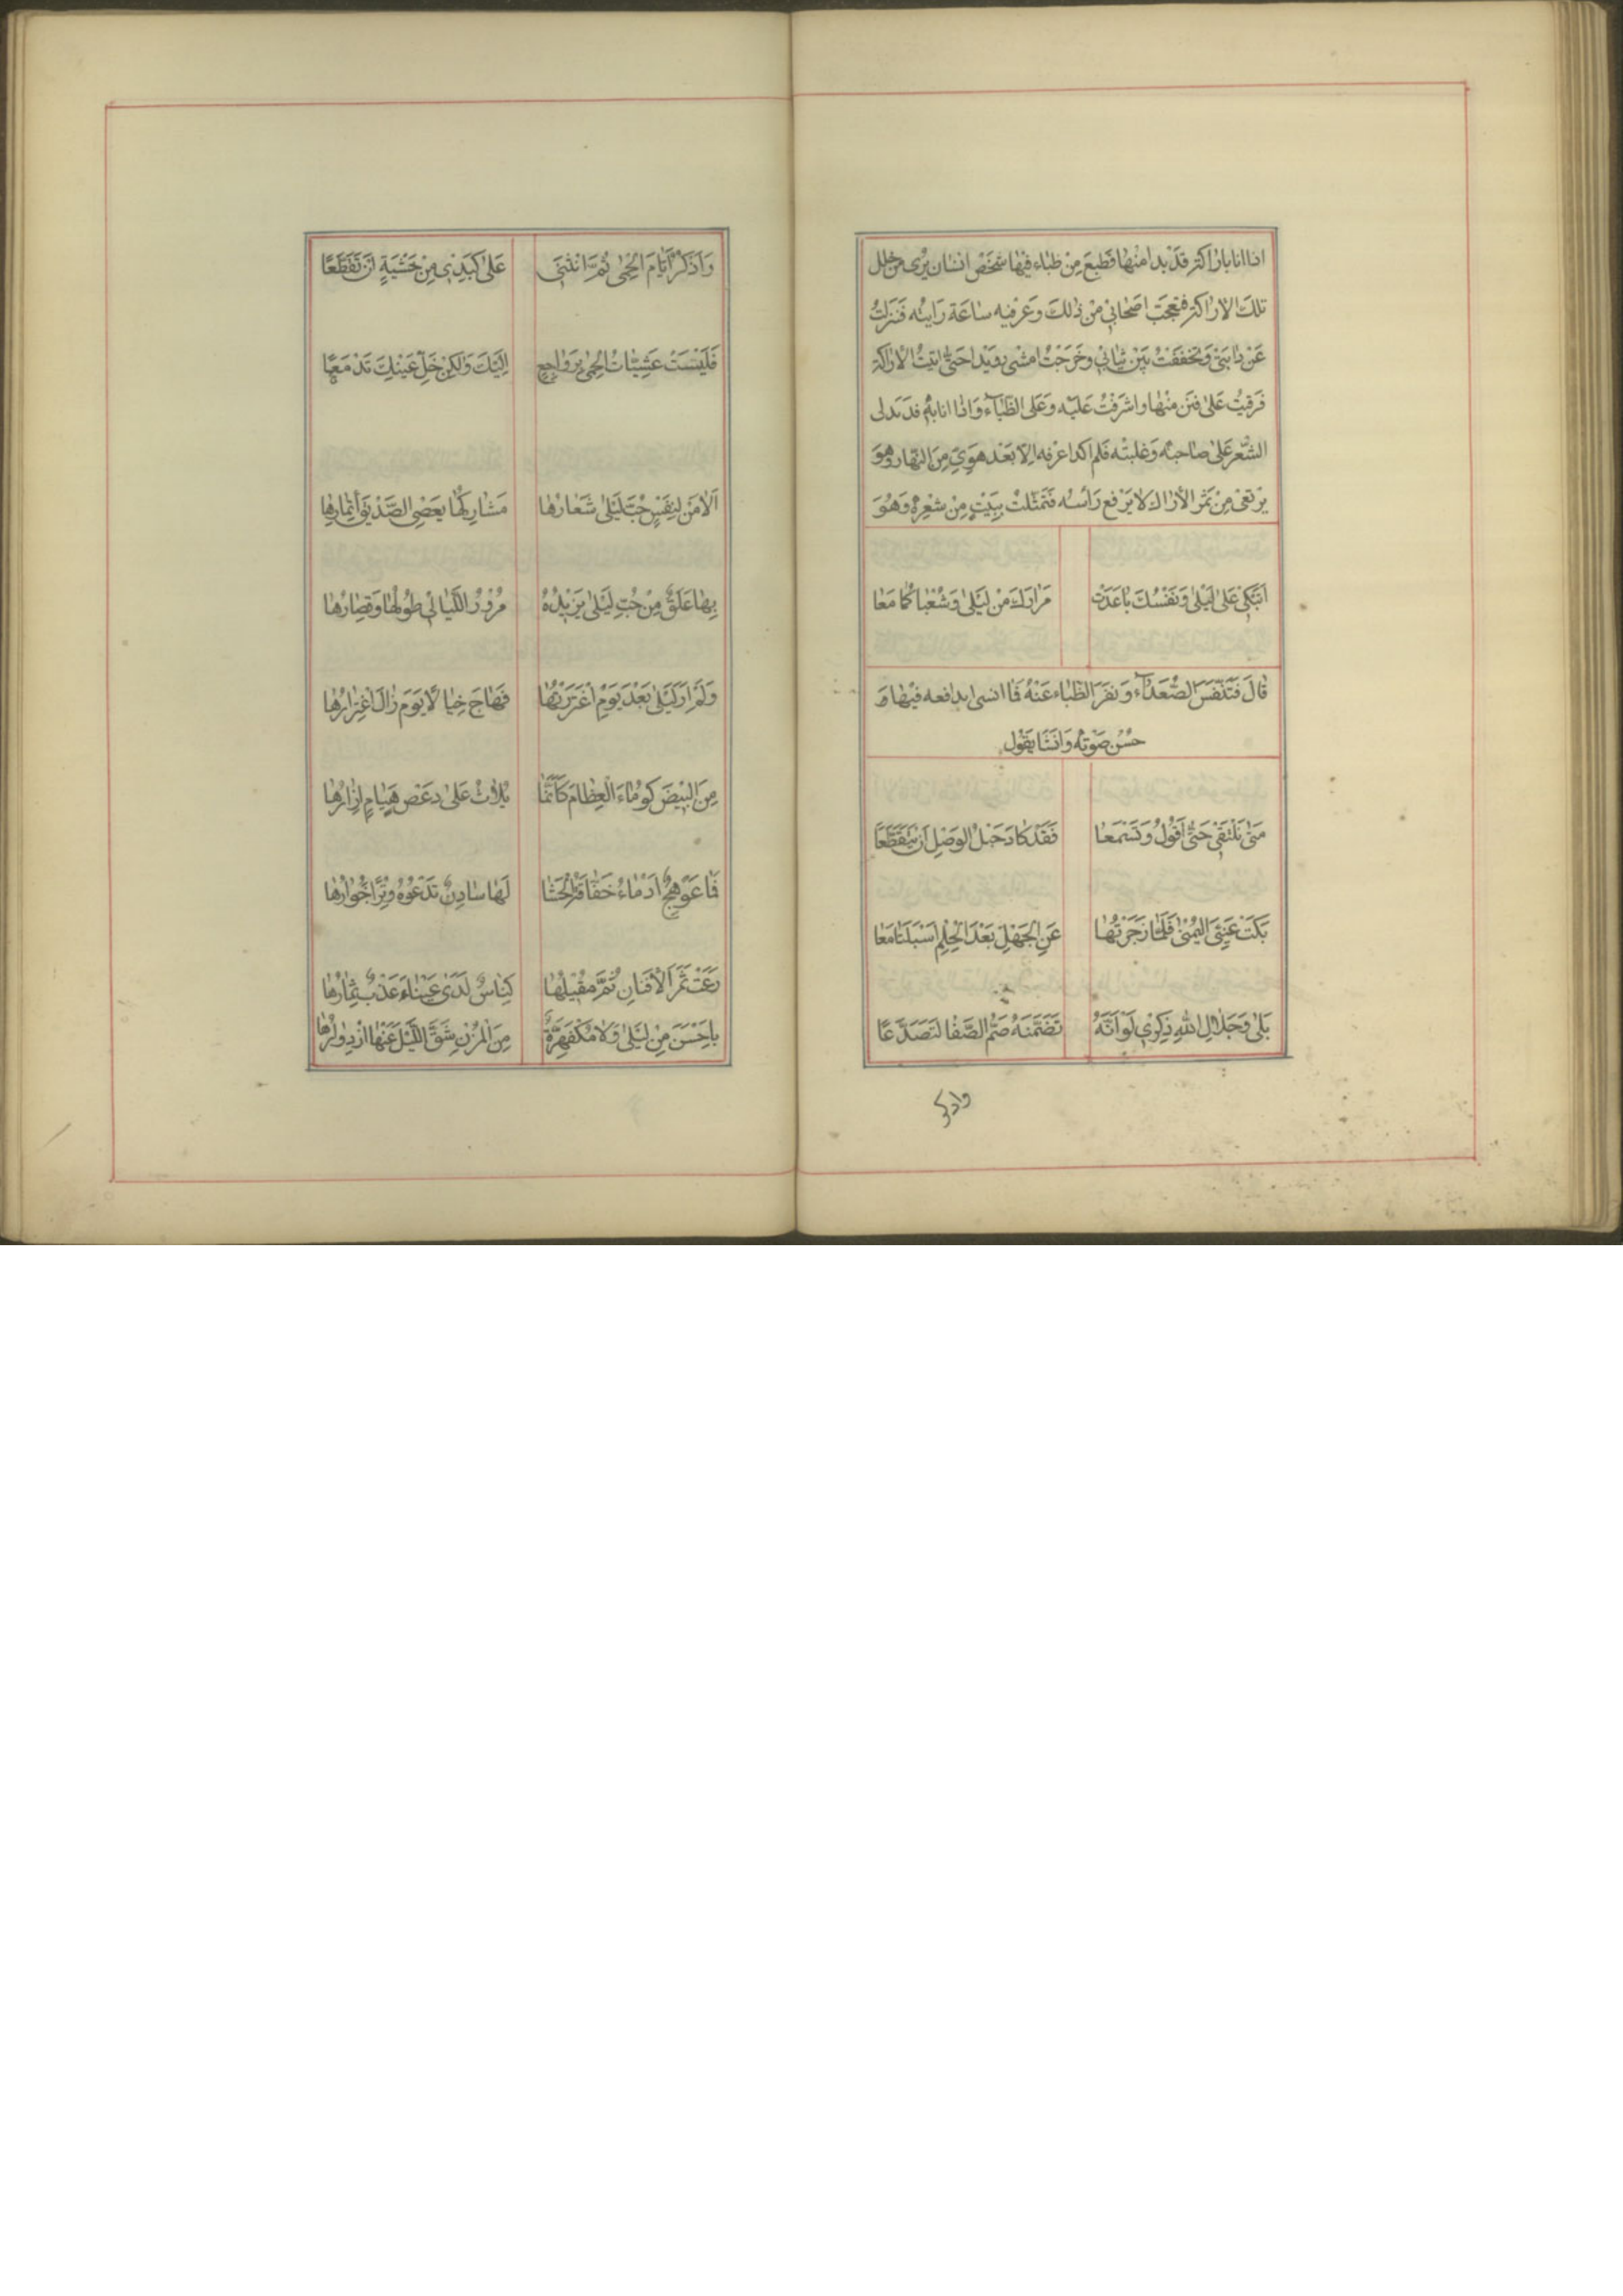 اذا انا باراكة قَدْ بدا منها قطيع مِنْ ظباء فيها شخَص انسان يُرى من خلل
تلكَ الاراكة فتعجبَ اصحابي مِنْ ذلكَ وعرفته ساعة رَايته فنزلتُ
عَنْ دابتي وتخففتُ بين ثيابي وخَرجتُ امشي رويدا حتّى اتيتُ الاراكة
فرقيتُ على فنن منها واشرفتُ عليه وَعَلى الظّبآء وَاذا انا به قد تدلى
الشّعر عَلى صاحبه وَغلبته فلم اكد اعرفه الّا بَعْد هوىّ مِنَ النّهار وهوَ
يَرْتعى مِنْ ثمر الأراك لا يَرْفع رَأسه فَتَمثّلتُ بِبَيْتٍ مِنْ شعره وَهُوَ
اَتبْكي عَلى لَيْلى وَنَفْسُكَ باعَدَتْ مَزارَكَ مِنْ لَيْلى وَشعْباكُما مَعا
قالَ فَتَنَفّسَ الصُّعَدآء وَنفرَ الظّباء عَنْهُ فَما انسى فيها وَ
حُسْن صَوْته وَانشا يَقول
مَتى نَلْتقي حَتّى اَقُولُ وَتَسْمَعا فَقَدْ كادَ حَبْلُ الوَصْلِ اَنْ يَتَقَطّعَا
بَكَتْ عَيْنِيَ اليُمْنى فَلَمّا زَجَرْتُها عَنِ الجَهْلِ بَعْدَ الحِلْمِ اَسْبَلَتا مَعا
بَلى وَجَلالِ اللهِ ذِكري لَوْ اَنَّهُ تَضَمَّنَهُ صُمُّ الصَّفا لَتَصَدَّعَا
واذكر
وَاَذْكُرُ اَيّامَ الحِمى ثُمَّ انْثَنى عَلى كَبِدي مِنْ خَشْيَةٍ اَنْ تَقَطَّعَا
فَلَيْسَتْ عَشِيّاتُ الحِمى بِرَواجِعٍ اِلَيْكَ وَلكِنْ خَلِّ عَيْنَكَ تَدْمَعَا
اَلا مَنْ لِنَفْسٍ حُبُّ لَيْلى شعارُها مَشارِكُها بَعْضِى الصّديق
بِها عَلَقٌ مِنْ حُبِّ لَيْلى يَزيدُهُ مُرُورُ اللّيالي طُولُها وَقِصارُها
وَلَمْ اَرَ لَيْلى بَعْدَ يَوْمٍ اغْتَرَرْتُها فَهاجَ خِيالاً يَوْمَ زالَ اغْتِرارُها
مِنَ البيضِ كَوْماءَ العِظامِ كَاَنّما يُلاثُ عَلى دعصٍ هَيامٍ اِزارُها
فَما عَوْهَجٌ اَدْماءُ خَفّاقَةُ الحَشا لَها شادِنٌ تَدْعُوهُ وِتْراً خُوارُها
رَعَتْ ثَمَرَ الأفْنانِ ثُمَّ مَقيلُها كِناسٌ لَدى عَيْناءَ عَذْبٌ ثِمارُها
بِاَحْسَنَ مِنْ لَيْلى وَلا مُكْفَهِرَّةٌ مِنَ المُزْنِ شَقَّ اللَّيْلَ عَنْها ازْدِرارُها